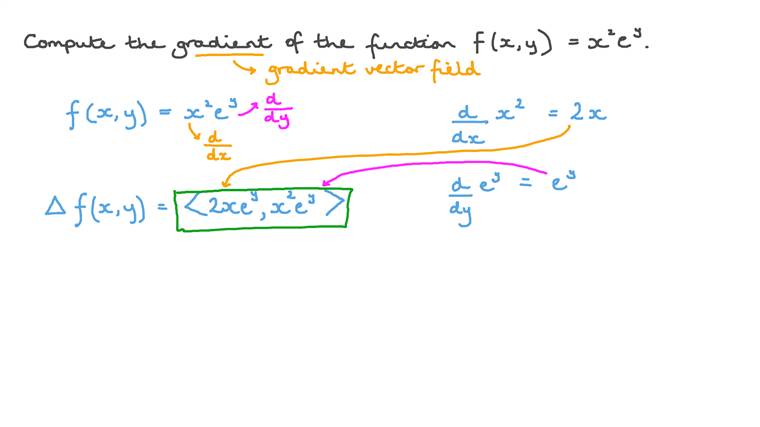 Compute the gradient of the function f(x,y) = x²eʸ.
→ gradient vector field
f(x,y) = x²eʸ → d/dy
d/dx
d/dx x² = 2x
Δ f(x,y) = <2xeʸ, x²eʸ>
d/dy eʸ = eʸ